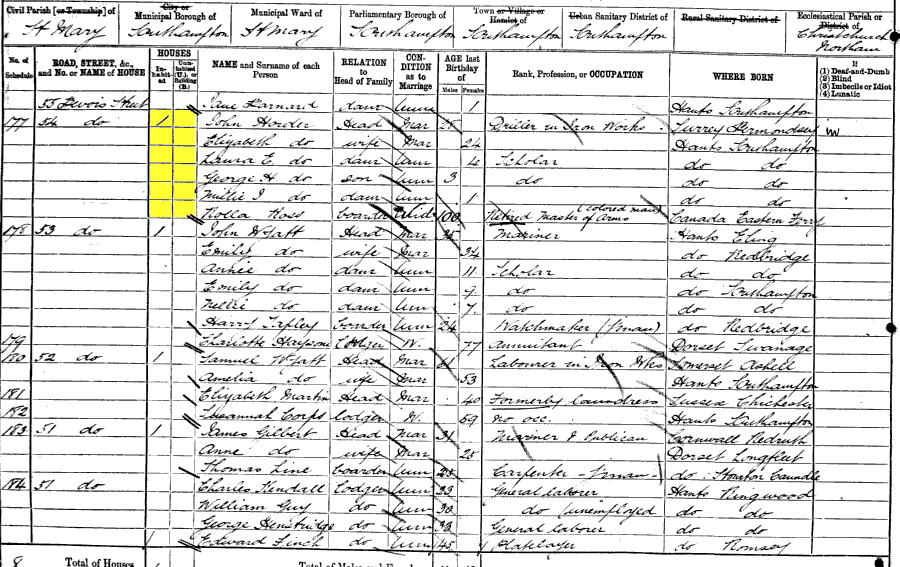 Civil Parish [or Township] of
City or Municipal Borough of
Municipal Ward of
Parliamentary Borough of
Town or Village or Hamlet of
Urban Sanitary District of
Rural Sanitary District of
Ecclesiastical Parish or District of
St Mary Southampton St Mary Southampton Southampton Southampton Christchurch Northam
No. of Schedule
ROAD, STREET, &c., and No. or NAME of HOUSE
HOUSES
In-habited
Unin-habited (U.), or Building (B.)
NAME and Surname of each Person
RELATION to Head of Family
CONDITION as to Marriage
AGE last Birthday of
Males
Females
Rank, Profession, or OCCUPATION
WHERE BORN
If
(1) Deaf-and-Dumb
(2) Blind
(3) Imbecile or Idiot
(4) Lunatic
55 Street Jane daur Unm 1 Hants Southampton
177 54 do 1 John Horder Head Mar Driller in Iron Works Surrey Bermondsey
Elizabeth do wife Mar 24 Hants Southampton
Laura E. do daur Unm 4 Scholar do do
George H do son Unm 3 do do do
do daur Unm 1 do do
Ross boarder Wid 100 Retired Master of Arms (colored man) Canada Eastern
178 53 do 1 John Wyatt Head Mar Mariner Hants Eling
Emily do wife Mar 34 do Redbridge
Annie do daur Unm 11 Scholar do do
Emily do daur Unm 9 do do Southampton
Nellie do daur Unm 7 do do do
Harry Tapley boarder Unm 24 Watchmaker (Jman) do Redbridge
179 Charlotte lodger W. 77 Annuitant Dorset Swanage
180 52 do 1 Samuel Wyatt Head Mar 61 Labourer in Iron Wks Somerset Ashell
Amelia do wife Mar 53 Hants Southampton
181 Elizabeth Martin Head Mar 40 Formerly laundress Sussex Chichester
182 Susannah Corps lodger W. 69 no occ. Hants Southampton
183 51 do 1 James Gilbert Head Mar 31 Mariner & Publican Cornwall Redruth
Anne do wife Mar 25 Dorset Longfleet
Thomas Line boarder Unm 23 Carpenter - Jman do Stourton Caundle
184 51 do Charles Kendall lodger Unm 23 General laborer Hants Ringwood
William Guy do Unm 30 do (unemployed do do
George Henstridge do Unm General laborer do do
Edward Finch do Unm 45 Platelayer do Romsey
8 Total of Houses
Total of Males and